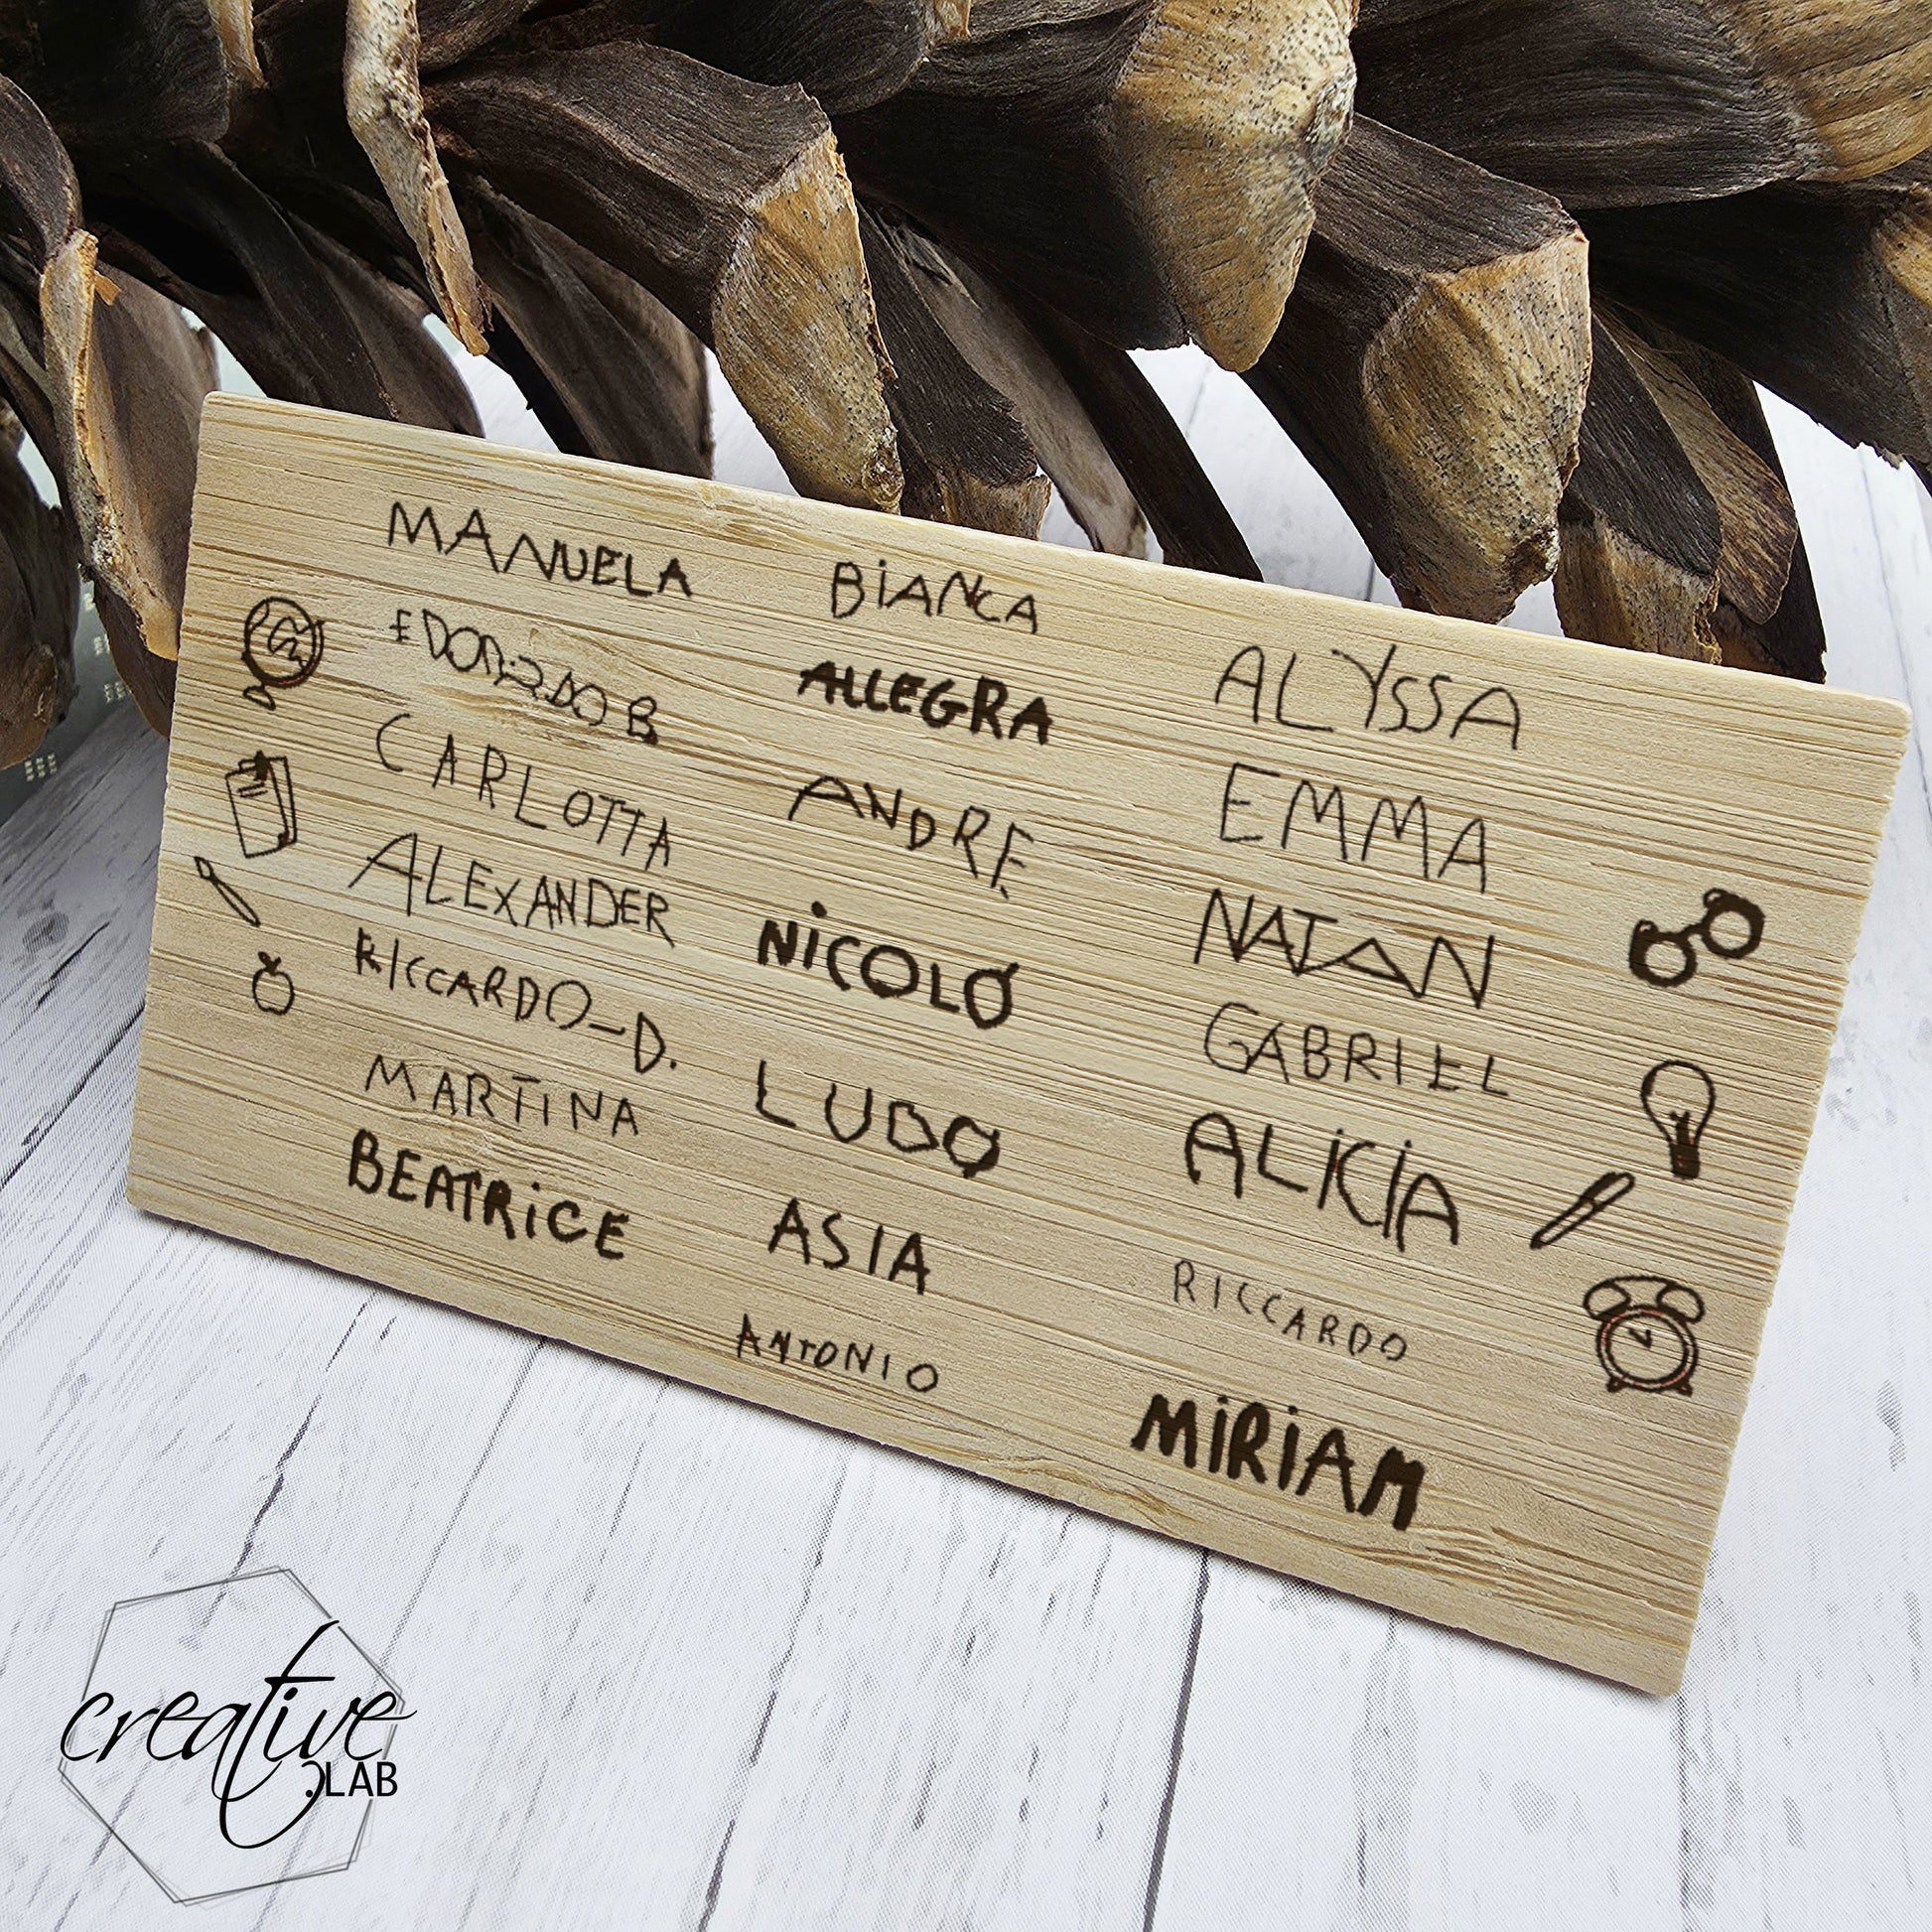 MANUELA
EDOARDO B
CARLOTTA
ALEXANDER
RICCARDO-D.
MARTiNA
BEATRiCE
BiANCA
ALLEGRA
ANDRE
NiCOLÓ
LUDO
ASIA
ANTONIO
ALYSSA
EMMA
NATAN
GABRIEL
ALiCiA
RICCARDO
MiRiAM
creative
.LAB